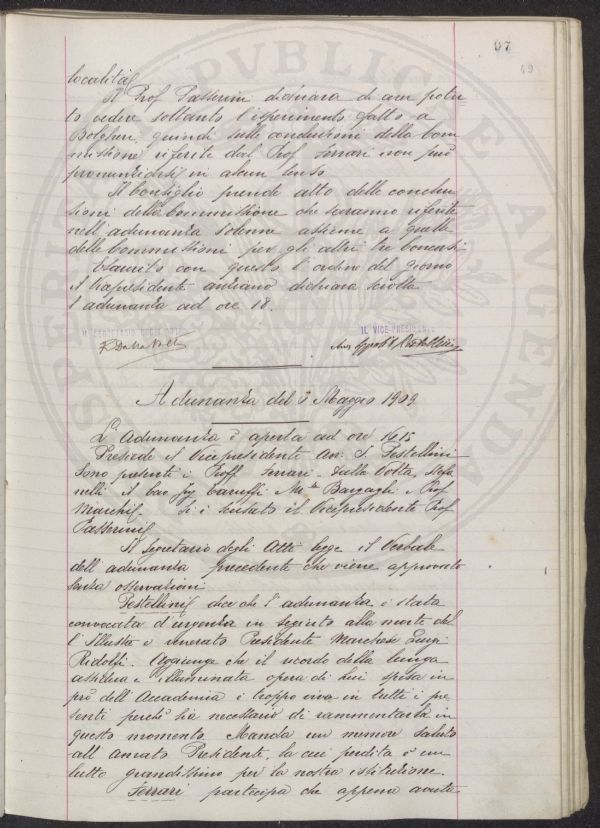 97
49
località
Il Prof Passerini dichiara di aver potu-
to vedere soltanto l'esperimento fatto a
Bolgheri, quindi sulle conclusioni della Com
missione riferite dal Prof Ferrari non può
pronunciarsi in alcun senso
Il Consiglio prende atto delle conclu-
sioni della Commissione che saranno riferite
nell'adunanza solenne assieme a quelle
delle Commissioni per gli altri tre Concorsi
Esaurito con questo l'ordine del giorno
il Vicepresidente anziano dichiara sciolta
l'adunanza ad ore 18.
IL SEGRETARIO DEGLI ATTI
IL VICE-PRESIDENTE
Adunanza del Maggio 1909
L'Adunanza è aperta ad ore 16.15
Presiede il Vicepresidente S. Pestellini
Sono presenti i Proff. Ferrari - Dalla Volta, Stefa
nelli il Cav Ing Caruffi M.se Bargagli e Prof
Marchi Si è scusato il Vicepresidente Prof
Passerini
Il Segretario degli Atti legge il Verbale
dell'adunanza precedente che viene approvato
senza osservazioni
Pestellini dice che l'adunanza è stata
convocata d'urgenza in seguito alla morte del
l'Illustre e venerato Presidente Marchese Luigi
Ridolfi. Aggiunge che il ricordo della lunga
assidua e illuminata opera di Lui spesa in
prò dell'Accademia è troppo vivo in tutti i pre
senti perchè sia necessario di rammentarla in
questo momento. Manda un memore saluto
all'amato Presidente, la cui perdita è un
lutto grandissimo per la nostra istituzione.
Ferrari partecipa che appena avuta